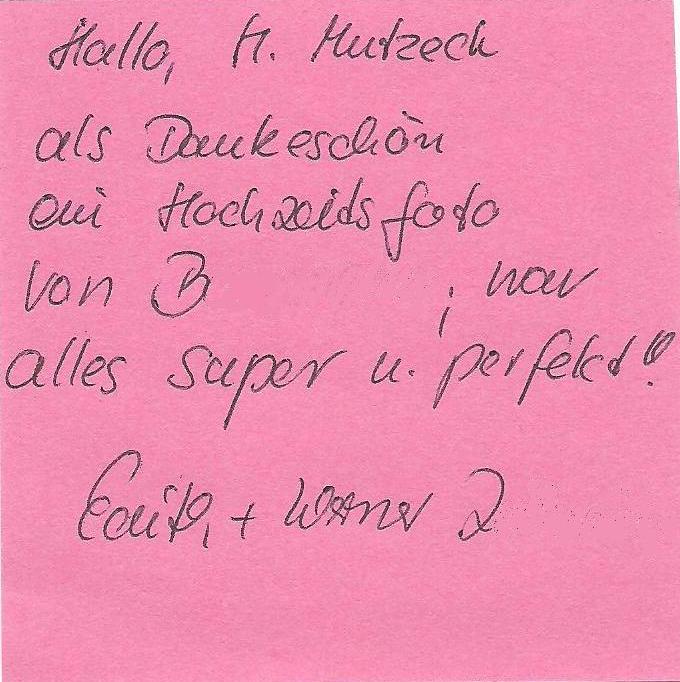 Hallo, H. Mutzeck
als Dankeschön
ein Hochzeitsfoto
von B ; war
alles super u. perfekt!
Edith + Werner Z